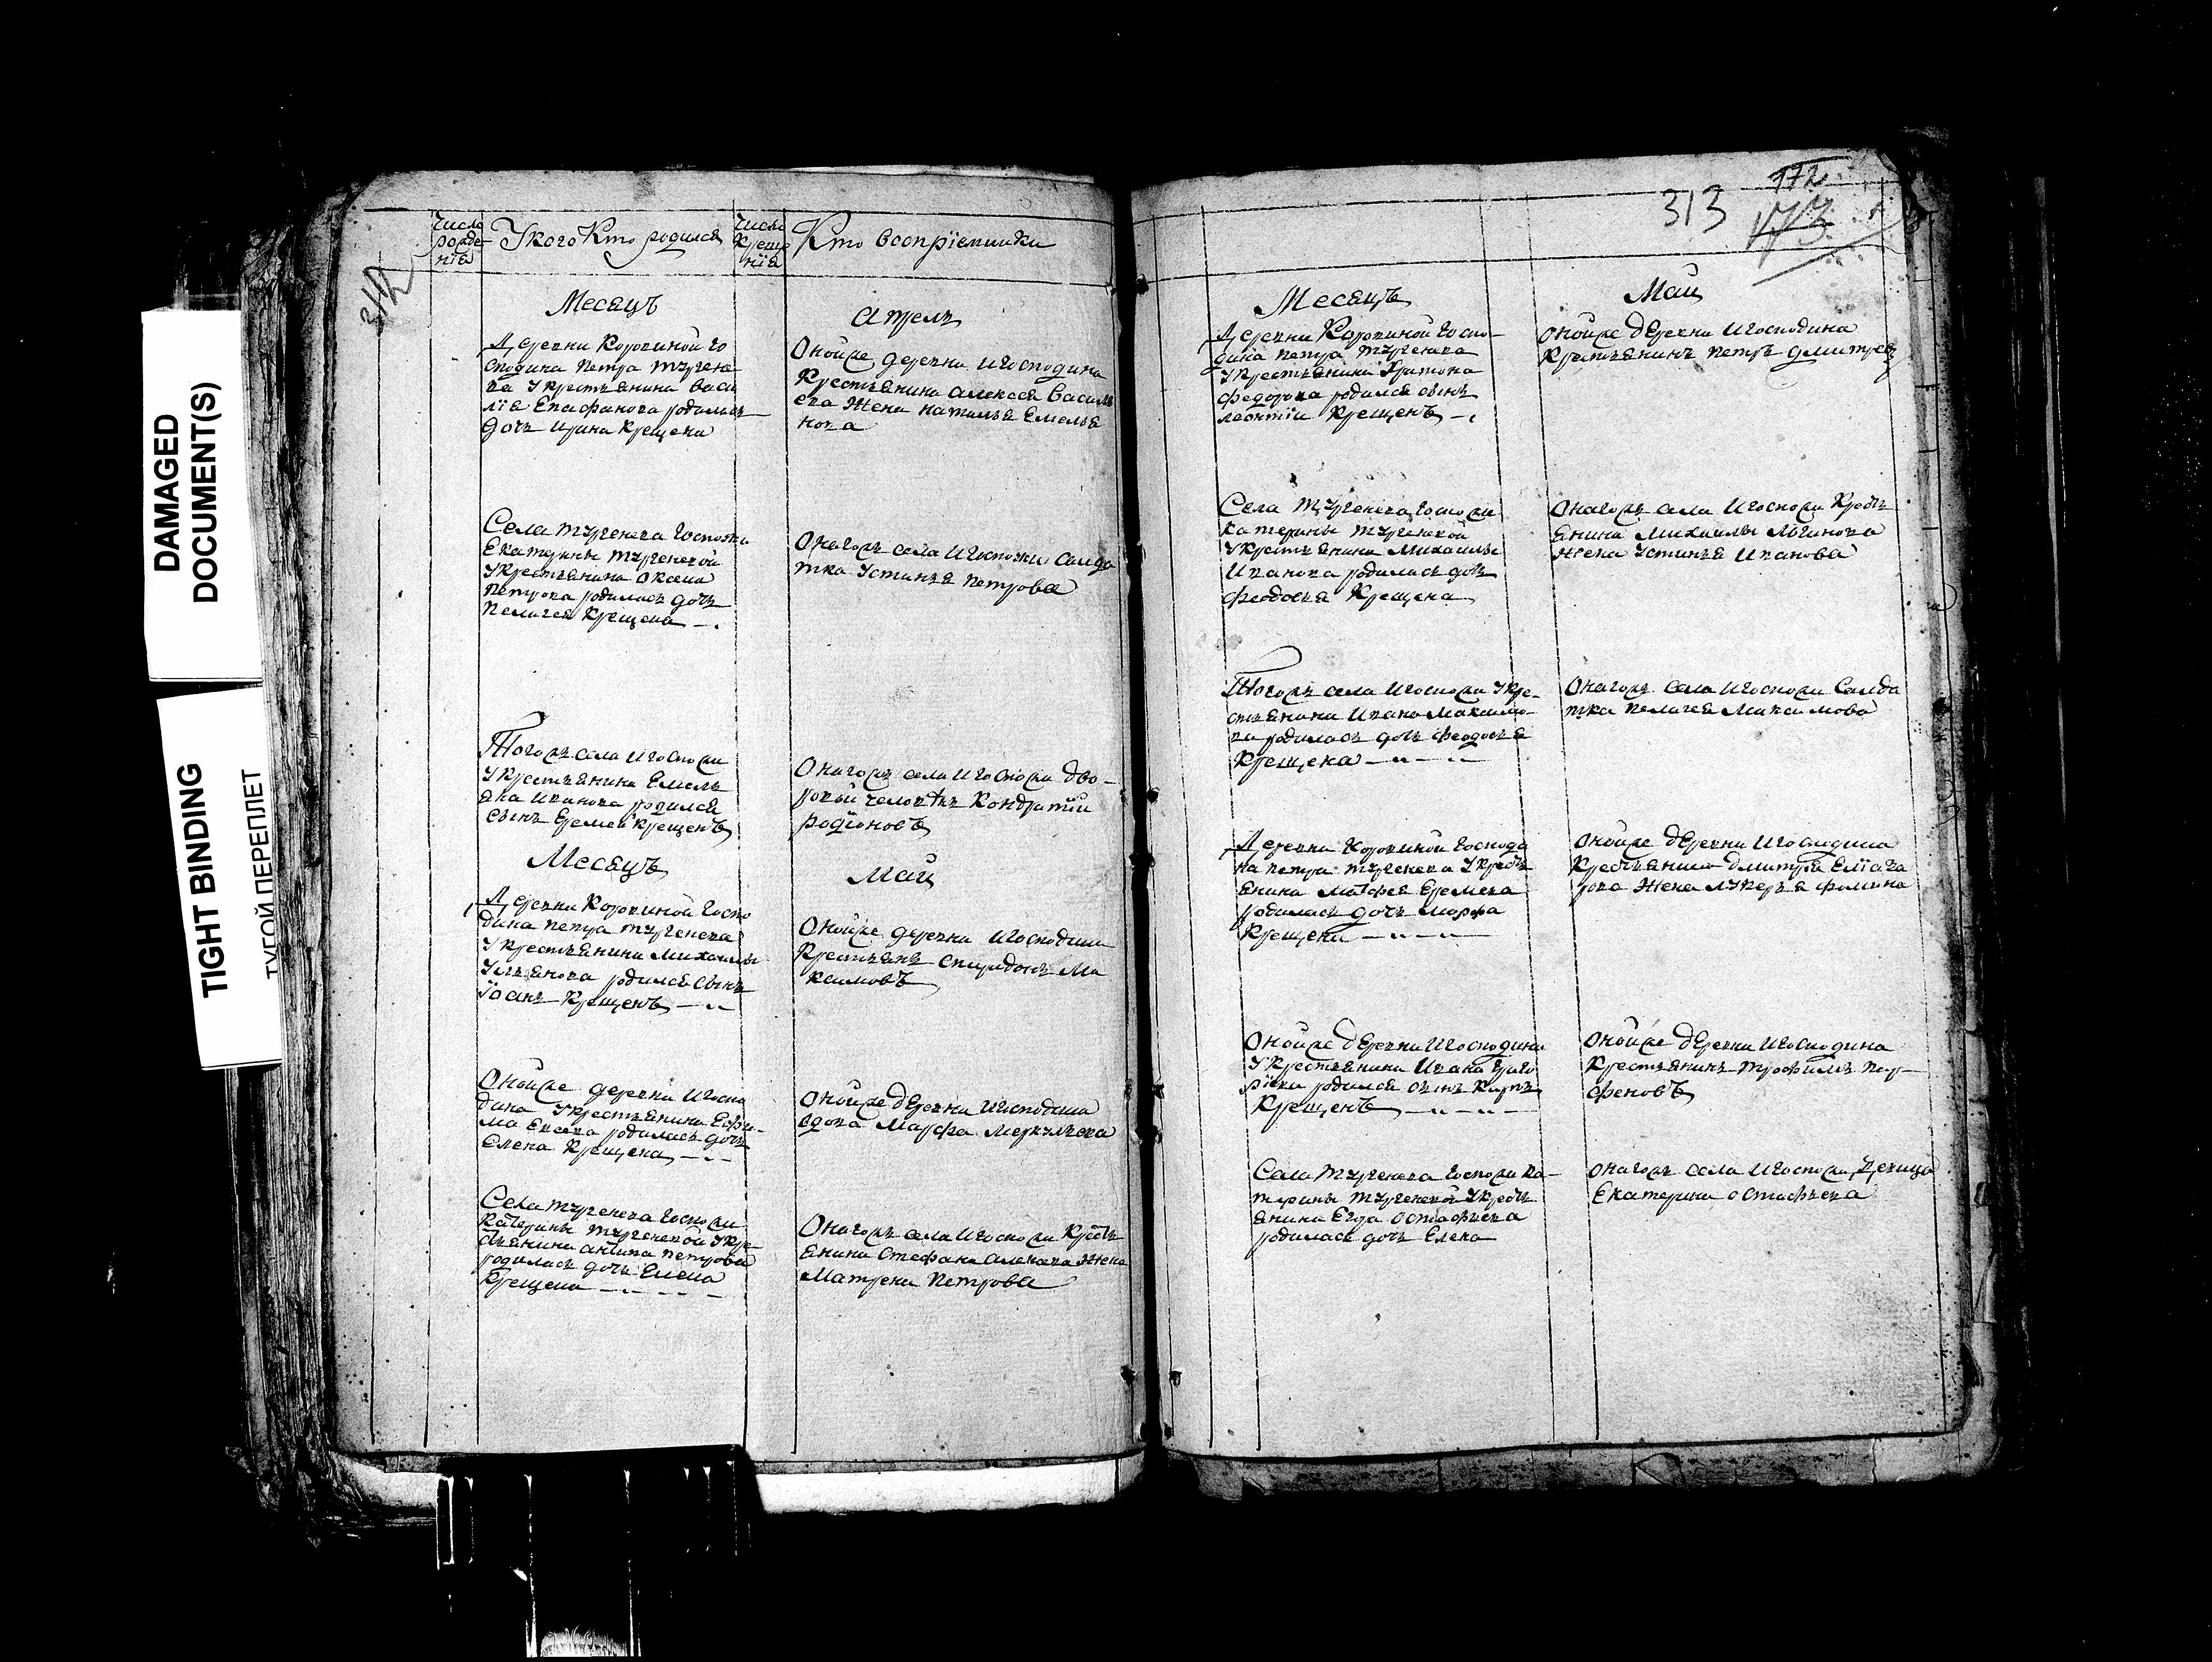 DAMAGED
DOCUMENT(S)
TIGHT BINDING
ТУГОЙ ПЕРЕПЛЕТ
312
Число
рожде-
нїя
У кого Кто родился
Число
Креще
нїя
Кто восприемники
Месяцъ
Апрель
Деревни Коровиной го
сподина Петра Тургене
ва У крестьянина Васи
лїя Епафанова родилась
дочь Ирина Крещена
Оной же деревни И господина
Крестьянина Алексея Василь
ева Жена Наталья Емелья
нова
Села Тургенева Госпожи
Екатерины Тургеневой
У крестьянина
Петрова родилась дочь
Пелагея Крещена
Онагожъ села И Госпожи Салда
тка Устинья Петрова
Тогожъ села И Госпожи
У Крестьянина Емель
яна Иванова родился
сынъ Еремей Крещенъ
Онагожъ села И Госпожи дво-
ровый человѣкъ Кондратїи
Родїоновъ
Месяцъ
Май
Деревни Коровиной Госпо
дина Петра Тургенева
У Крестьянина Михаилы
Ульянова родился сынъ
Їоанъ Крещенъ
Оной же деревни И Господина
Крестьянъ Спиридонъ Ма
ксимовъ
Оной же деревни И Госпо
дина У крестьянина Ефи-
ма Евсева родилась дочь
Елена Крещена
Оной же деревни И Господина
вдова Марфа Меркульева
Села Тургенева Госпожи
Катерины Тургеневой У кре-
стьянина Антипа Петрова
родилась дочь Елена
Крещена
Онагожъ села И Госпожи Кресть
янина Стефана Алексева Жена
Матрена Петрова
313
172
173
Месяцъ
Май
Деревни Коровиной Госпо-
дина Петра Тургенева
У Крестьянина Аритона
Федорова родился сынъ
Леонтїи Крещенъ
Оной же деревни И Господина
Крестьянинъ Петръ Дмитрев
Села Тургенева Госпожи
Катерины Тургеневой
У Крестьянина Михаилы
Иванова родилась дочь
Феодосья Крещена
Онагожъ села И Госпожи Кресть
янина Михаилы Логинова
Жена Устинья Иванова
Тогожъ села И Госпожи У Кре-
стьянина Ивана Максимо-
ва родилась дочь Феодосья
Крещена
Онагожъ села И Госпожи Салда
тка Пелагея Максимова
Деревни Коровиной Господи
на Петра Тургенева У Кресть
янина Матфея Еремева
родилась дочь Марфа
Крещена
Оной же деревни И Господина
Крестьянина Дмитрея
Жена Лукерья Фомина
Оной же деревни И Господина
У Крестьянина Ивана Григо
рїева родился сынъ Карпъ
Крещенъ
Оной же деревни И Господина
Крестьянинъ Трофимъ Пар-
феновъ
Села Тургенева Госпожи Ка-
терины Тургеневой У Кресть
янина Егора Остафьева
родилась дочь Елена
Онагожъ села И Госпожи Девица
Екатерина Остафьева